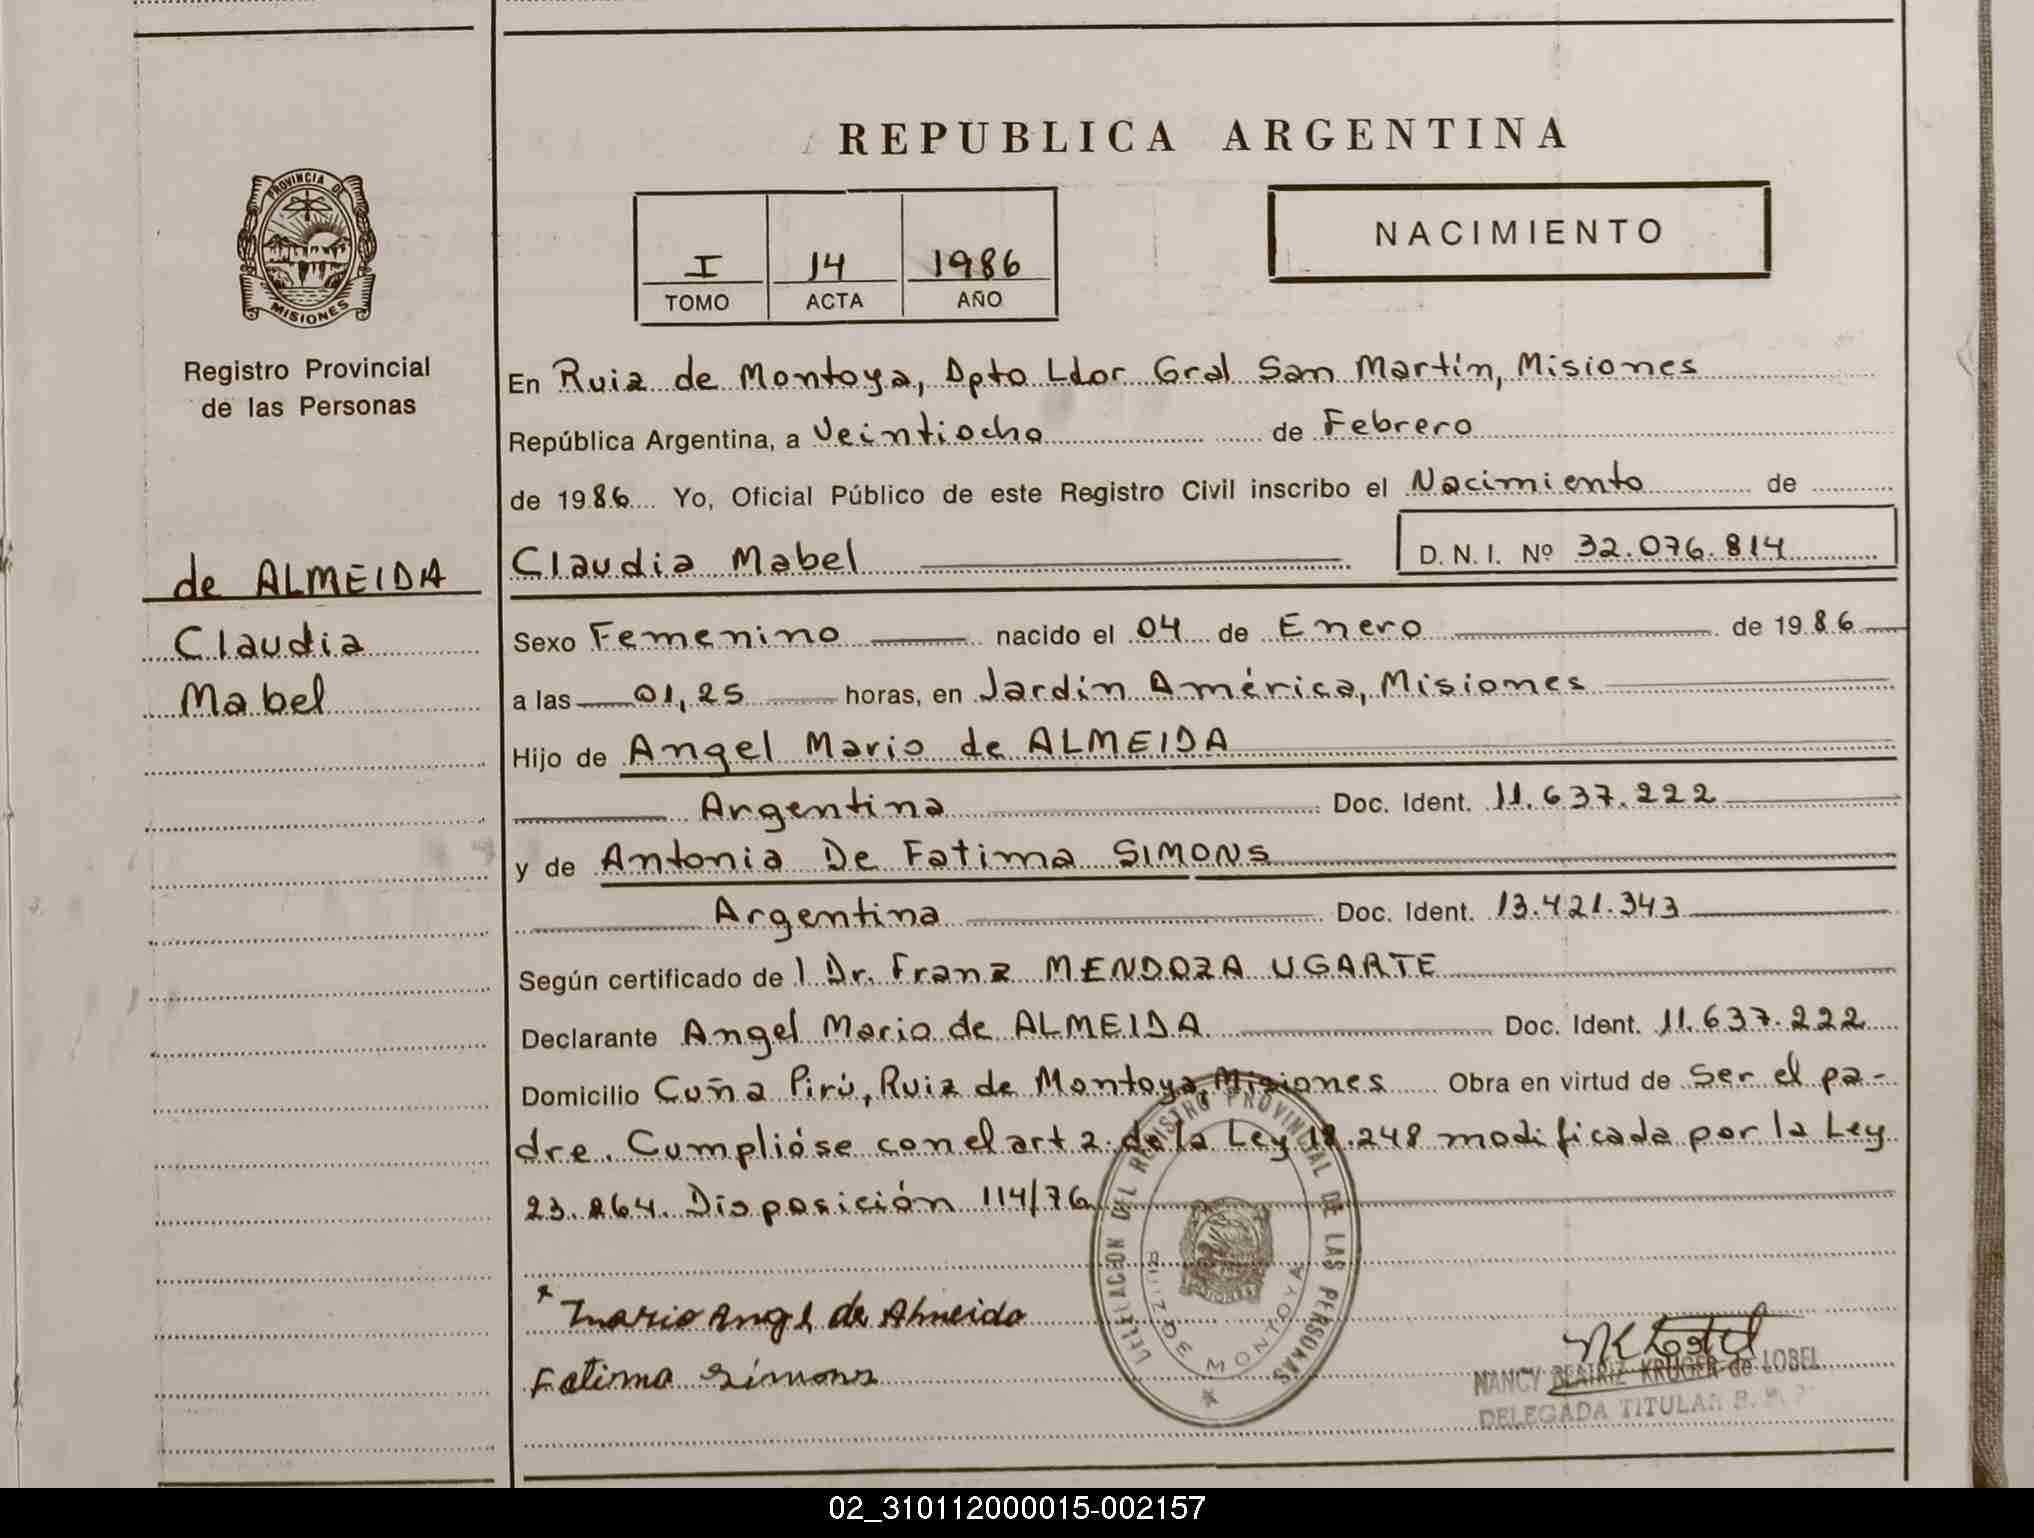 REPUBLICA ARGENTINA
PROVINCIA DE
MISIONES
Registro Provincial
de las Personas
I 14 1986
TOMO ACTA AÑO
NACIMIENTO
de ALMEIDA
Claudia
Mabel
En Ruiz de Montoya, Dpto Ldor Gral San Martín, Misiones
República Argentina, a Veintiocho de Febrero
de 1986 Yo, Oficial Público de este Registro Civil inscribo el Nacimiento de
Claudia Mabel D.N.I. Nº 32.076.814
Sexo Femenino nacido el 04 de Enero de 1986
a las 01,25 horas, en Jardín América, Misiones
Hijo de Angel Mario de ALMEIDA
Argentina Doc. Ident. 11.637.222
y de Antonia De Fatima SIMONS
Argentina Doc. Ident. 13.421.343
Según certificado de l Dr. Franz MENDOZA UGARTE
Declarante Angel Mario de ALMEIDA Doc. Ident. 11.637.222
Domicilio Cuña Pirú, Ruiz de Montoya, Misiones Obra en virtud de Ser el pa-
dre. Cumplióse con el art 2. de la Ley 18.248 modificada por la Ley
23.264. Disposición 114/76
Mario Angel de Almeida
Fatima Simons
DELEGACION DEL REGISTRO PROVINCIAL DE LAS PERSONAS
RUIZ DE MONTOYA
NANCY BEATRIZ KRUGER de LOBEL
DELEGADA TITULAR
02_310112000015-002157